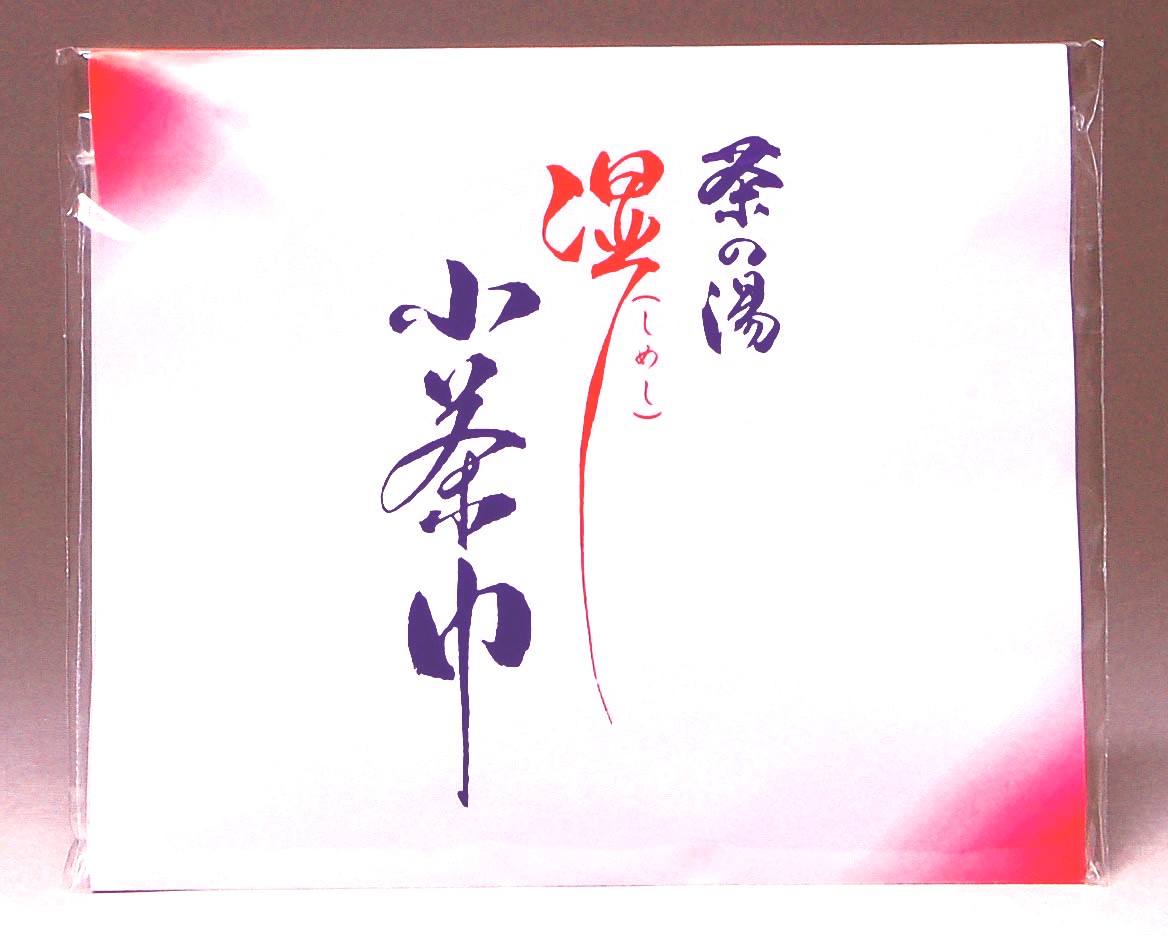 茶の湯
湿し
(しめし)
小茶巾